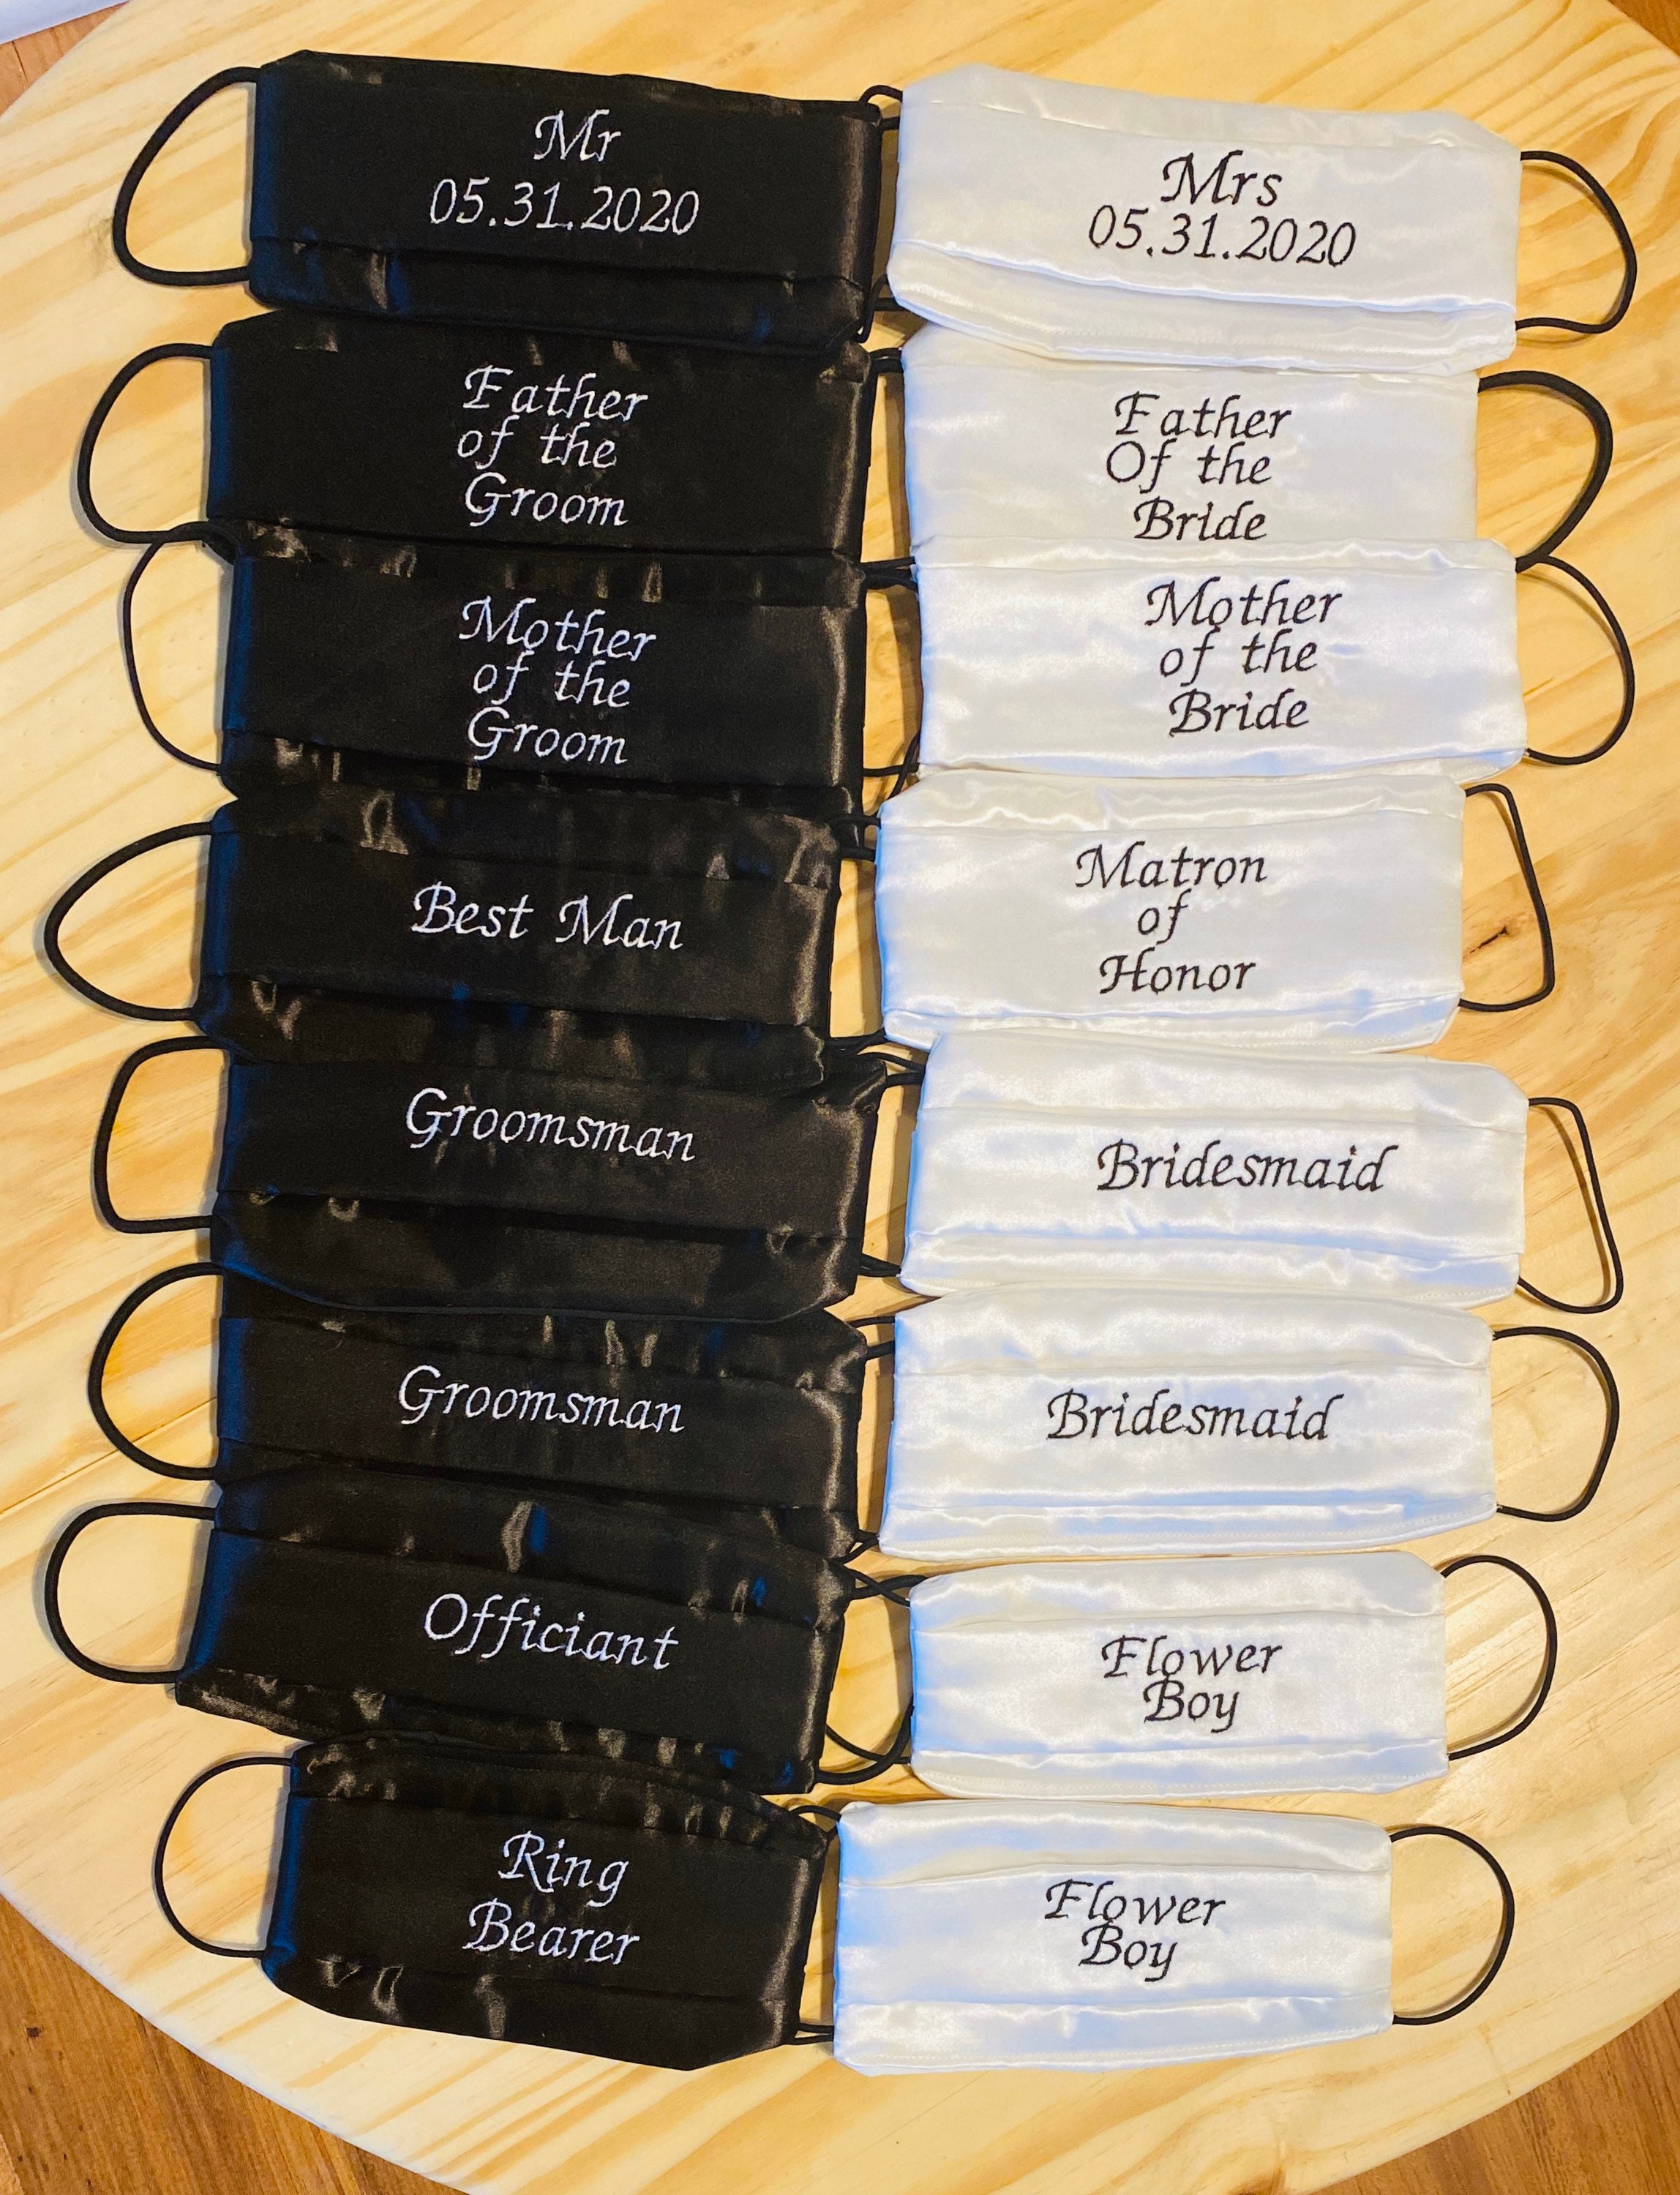 Mr
05.31.2020
Mrs
05.31.2020
Father
of the
Groom
Father
Of the
Bride
Mother
of the
Groom
Mother
of the
Bride
Best Man
Matron
of
Honor
Groomsman
Bridesmaid
Groomsman
Bridesmaid
Officiant
Flower
Boy
Ring
Bearer
Flower
Boy